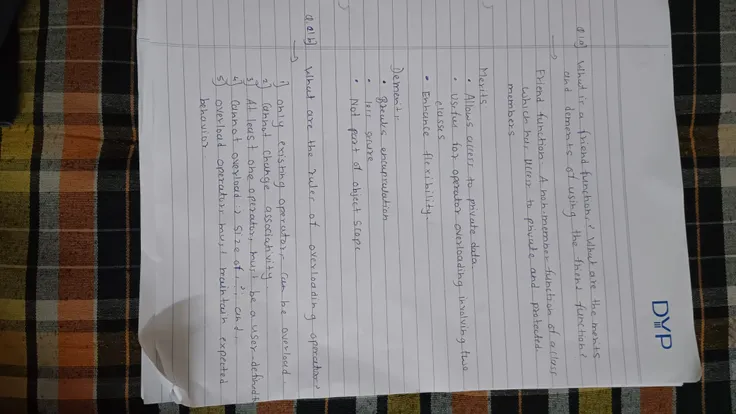 DYP
Q.1a) What is a friend function? What are the merits
and demerits of using the friend function?
→ Friend function: A non-member function of a class
which has access to private and protected
members
Merits
• Allows access to private data.
• Useful for operator overloading involving two
classes
• Enhance flexibility.
Demerits
• Breaks encapsulation
• less secure
• Not part of object scope
b] What are the rules of overloading operators
→
1) only existing operators can be overload
2) Cannot change associativity
3) At least one operator must be a user-defined
4) Cannot overload size of and
5) overload operator must maintain expected
behavior.